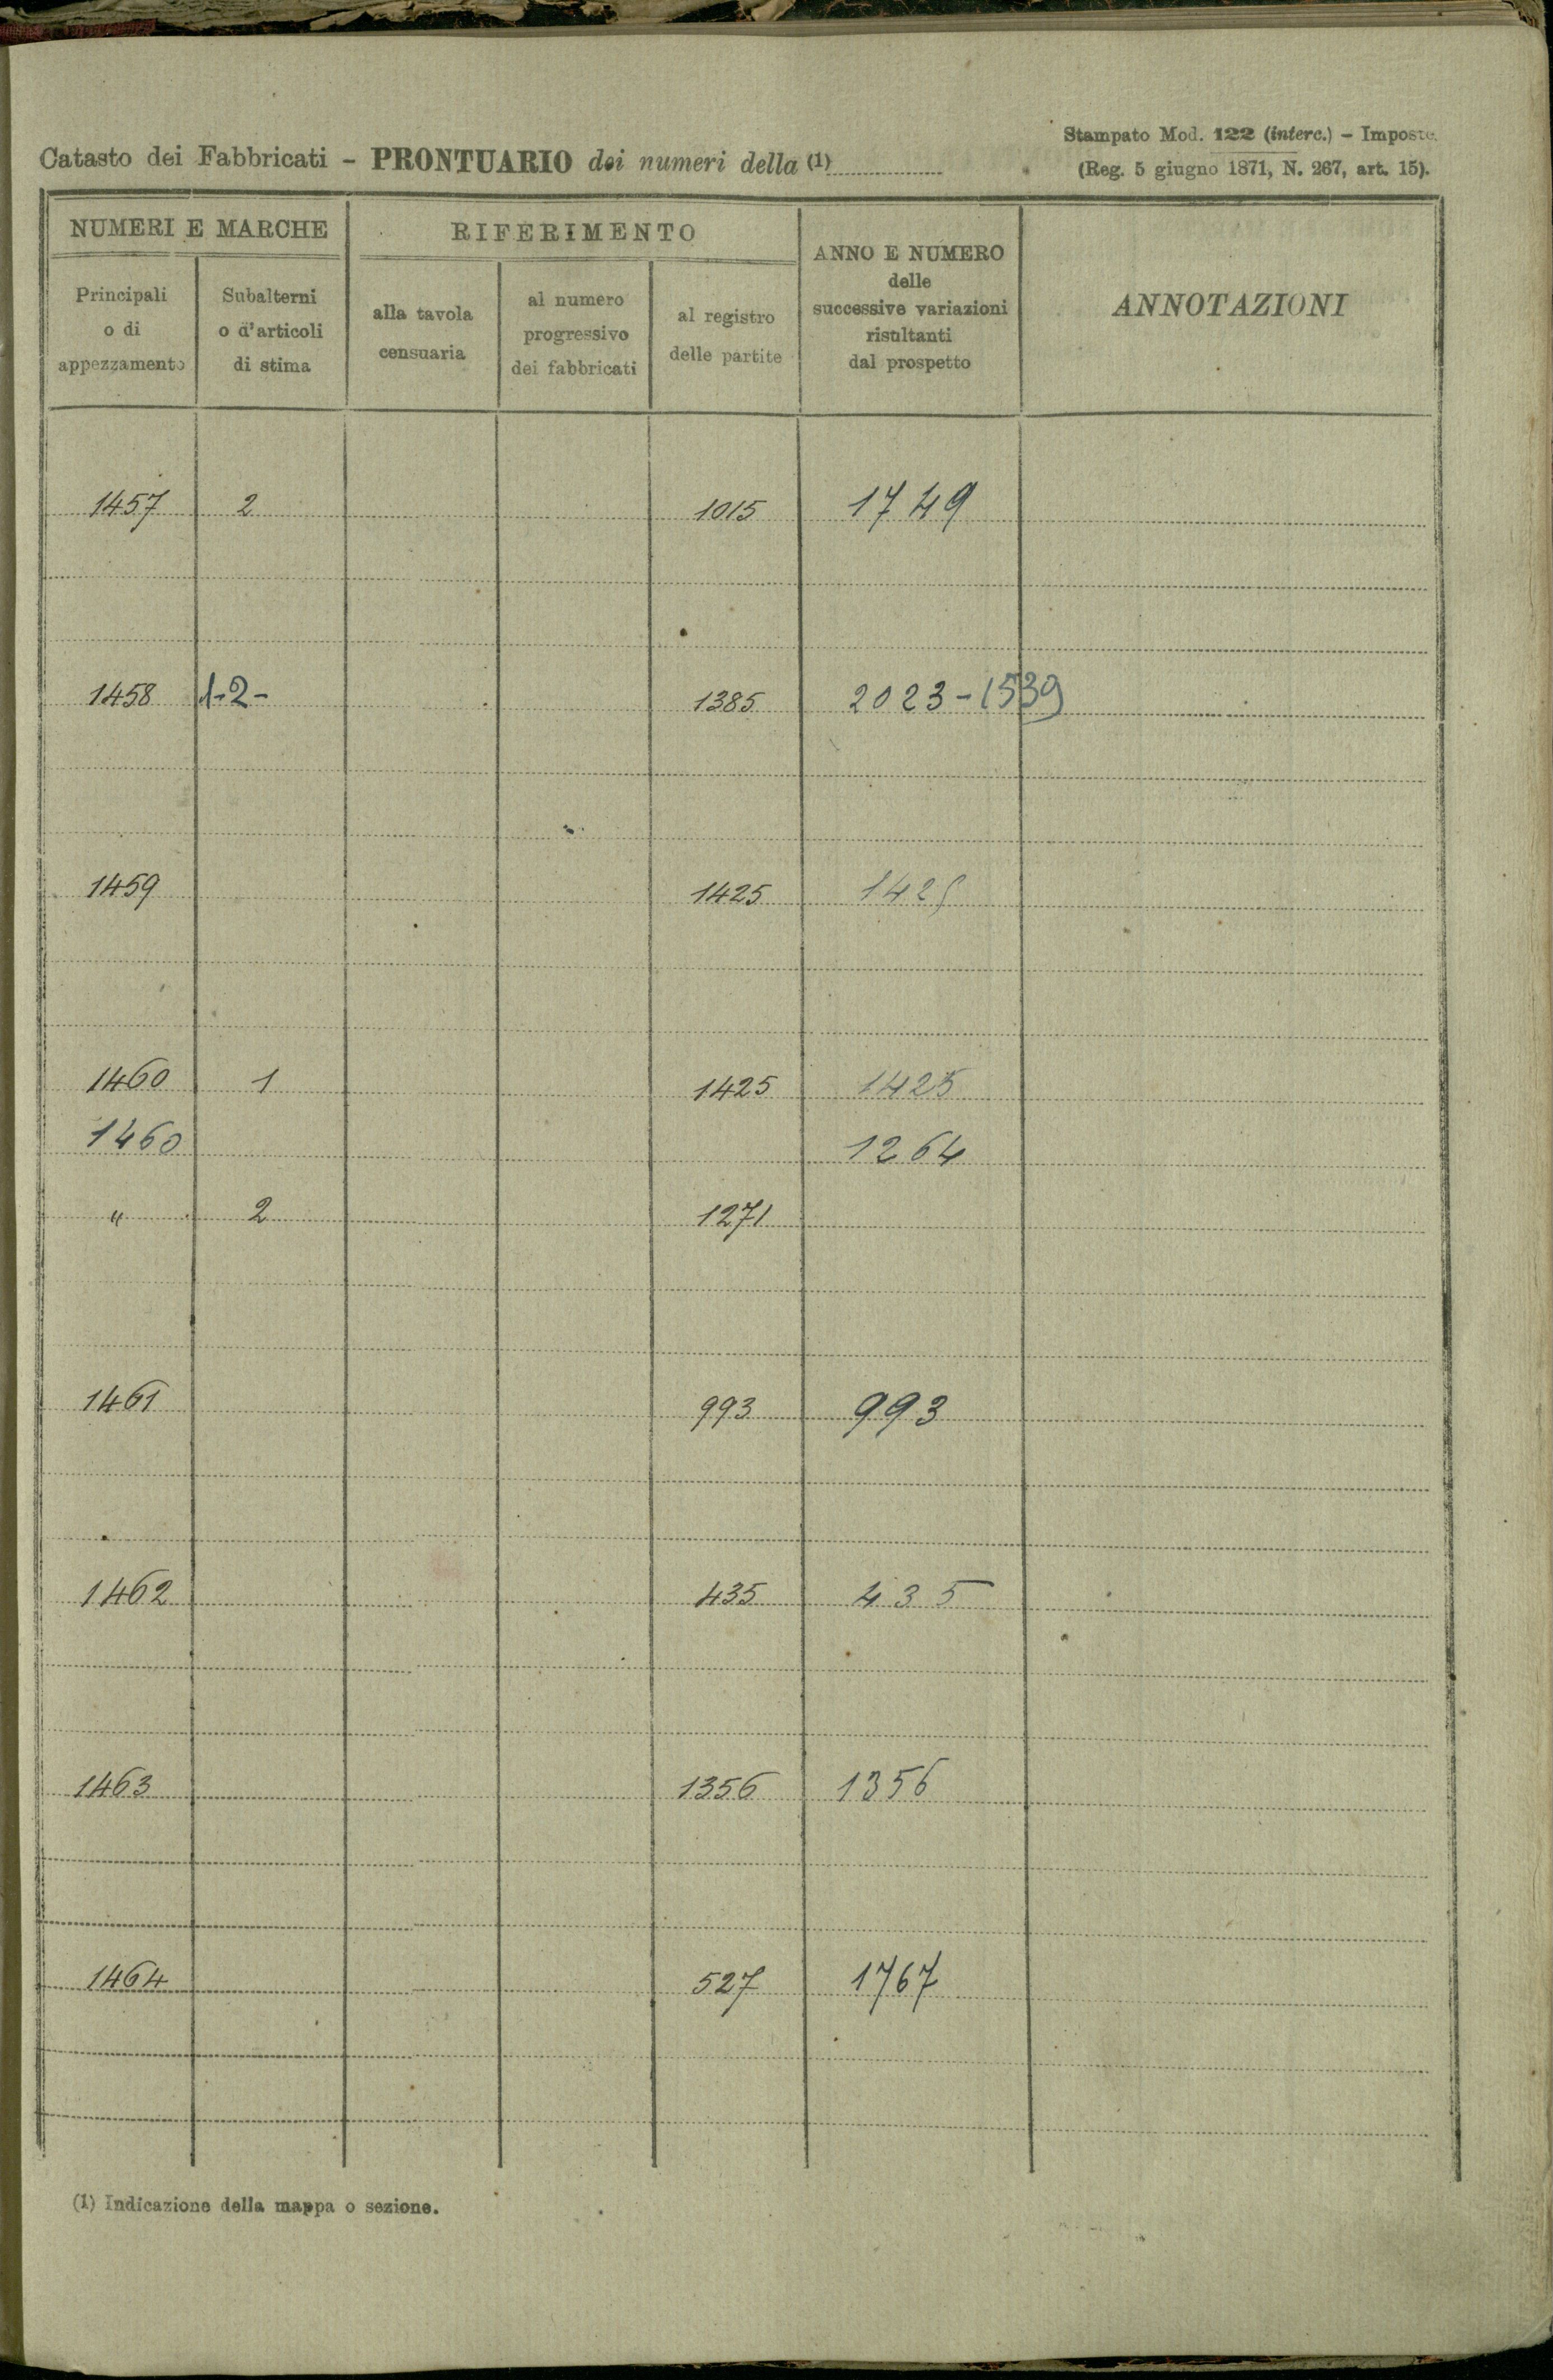 Stampato Mod. 122 (interc.) – Imposte.
(Reg. 5 giugno 1871, N. 267, art. 15).
Catasto dei Fabbricati – PRONTUARIO dei numeri della (1)
NUMERI E MARCHE
RIFERIMENTO
ANNO E NUMERO
delle
successive variazioni
risultanti
dal prospetto
ANNOTAZIONI
Principali
o di
appezzamento
Subalterni
o d'articoli
di stima
alla tavola
censuaria
al numero
progressivo
dei fabbricati
al registro
delle partite
1457 2 1015 1749
1458 1-2- 1385 2023-1539
1459 1425 1425
1460 1 1425 1425
1460 1264
" 2 1271
1461 993 993
1462 435 435
1463 1356 1356
1464 527 1767
(1) Indicazione della mappa o sezione.